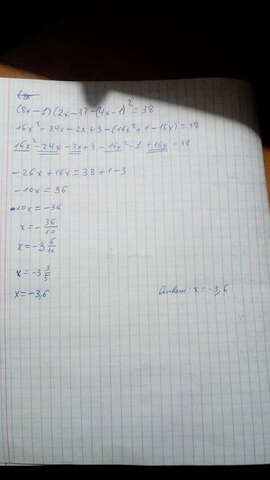 (8x-1)(2x-3)-(4x-1)²=38
16x²-24x-2x+3-(16x²+1-16x)=38
16x²-24x-2x+3-16x²-1+16x=38
-26x+16x=38+1-3
-10x=36
10x=-36
x=-36/10
x=-3 6/10
x=-3 3/5
x=-3,6
Ответ: x=-3,6